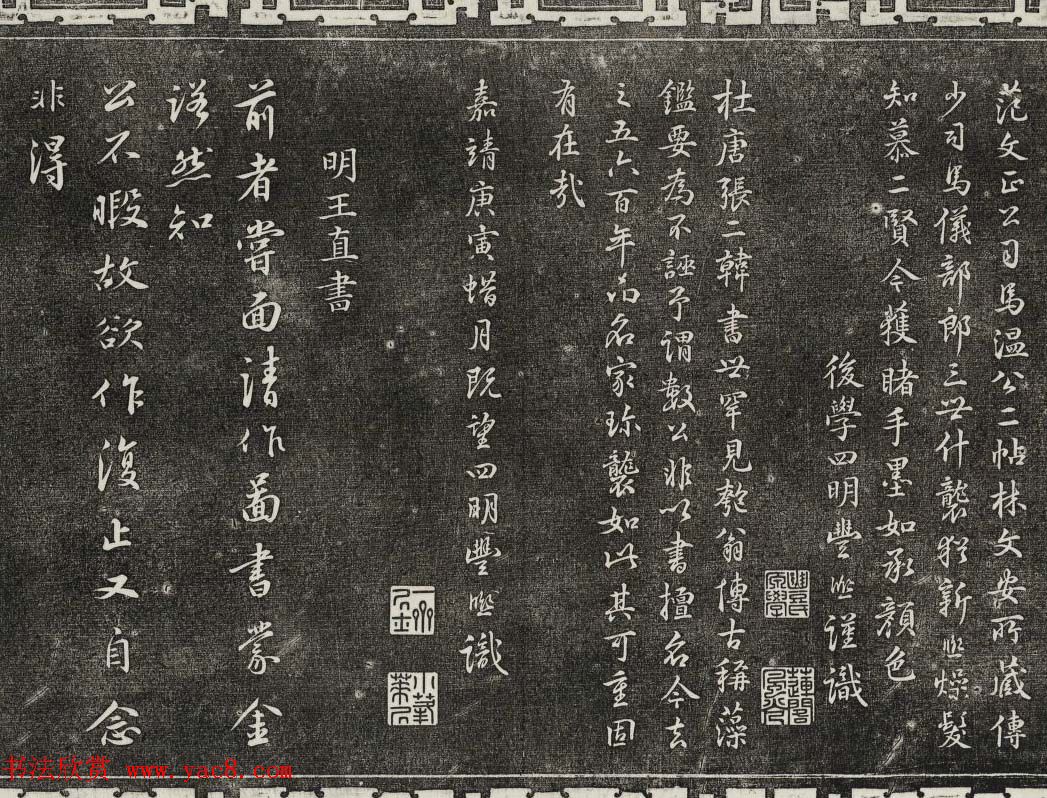 范文正公司馬溫公二帖林文安所藏傳
少司馬儀部郎三世什襲猶新熙燥髮
知慕二賢今獲睹手墨如承顏色
後學四明豐熙謹識
杜唐張二韓書世罕見匏翁博古稱藻
鑑要為不誣予謂數公非以書擅名今去
之五六百年而名家珍襲如此其可重固
有在哉
嘉靖庚寅蜡月既望四明豐熙識
明王直書
前者嘗面請作圖書蒙金
諾然知
公不暇故欲作復止又自念
非得
书法欣赏 www.yac8.com